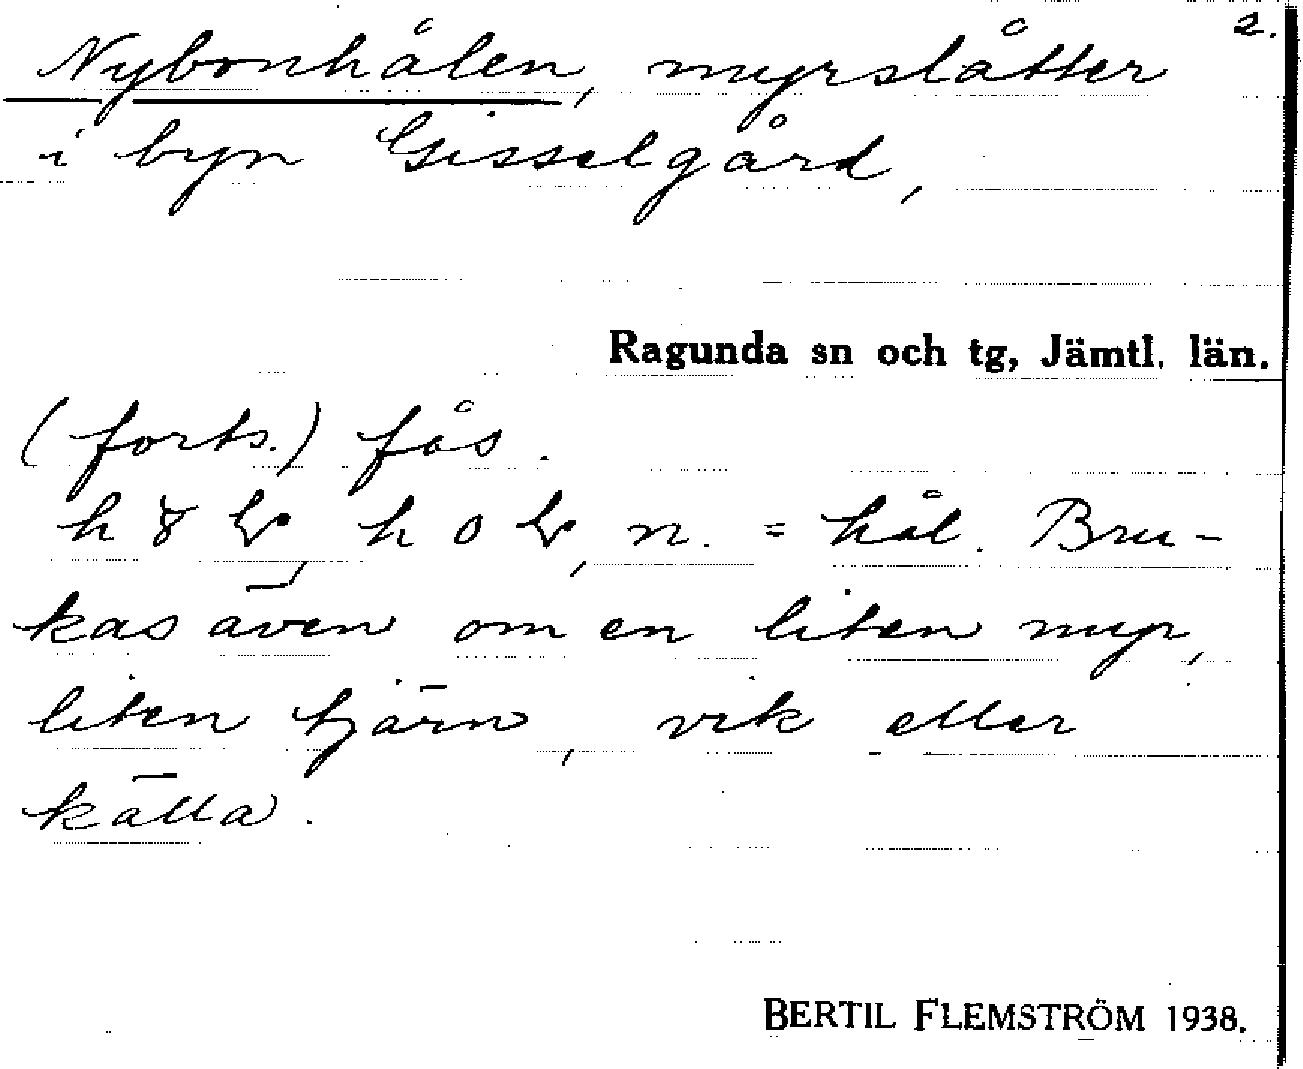 2.
Nybonhålen, myrslåtter
i byn Gisselgård,
Ragunda sn och tg, Jämtl. län.
(forts.) fås.
n. = hål. Bru-
kas även om en liten myr,
liten tjärn, vik eller
källa.
BERTIL FLEMSTRÖM 1938.